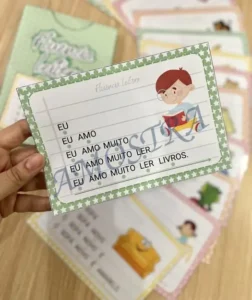 EU
EU AMO
EU AMO MUITO
EU AMO MUITO LER
EU AMO MUITO LER LIVROS.
AMOSTRA